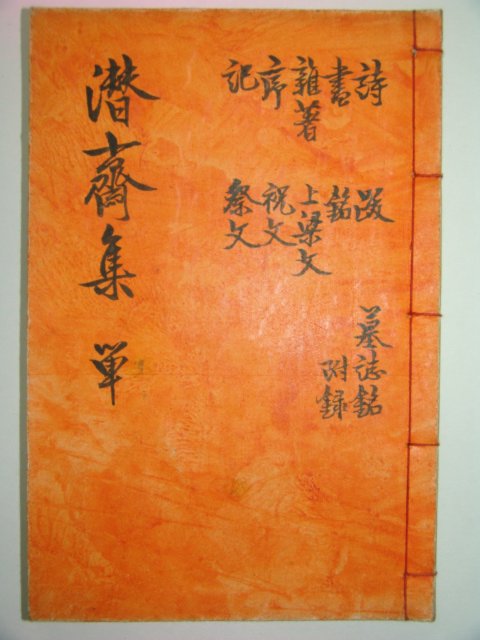 潛齋集 單
詩
書
雜著
序
記
跋
銘
上梁文
祝文
祭文
墓誌銘
附録